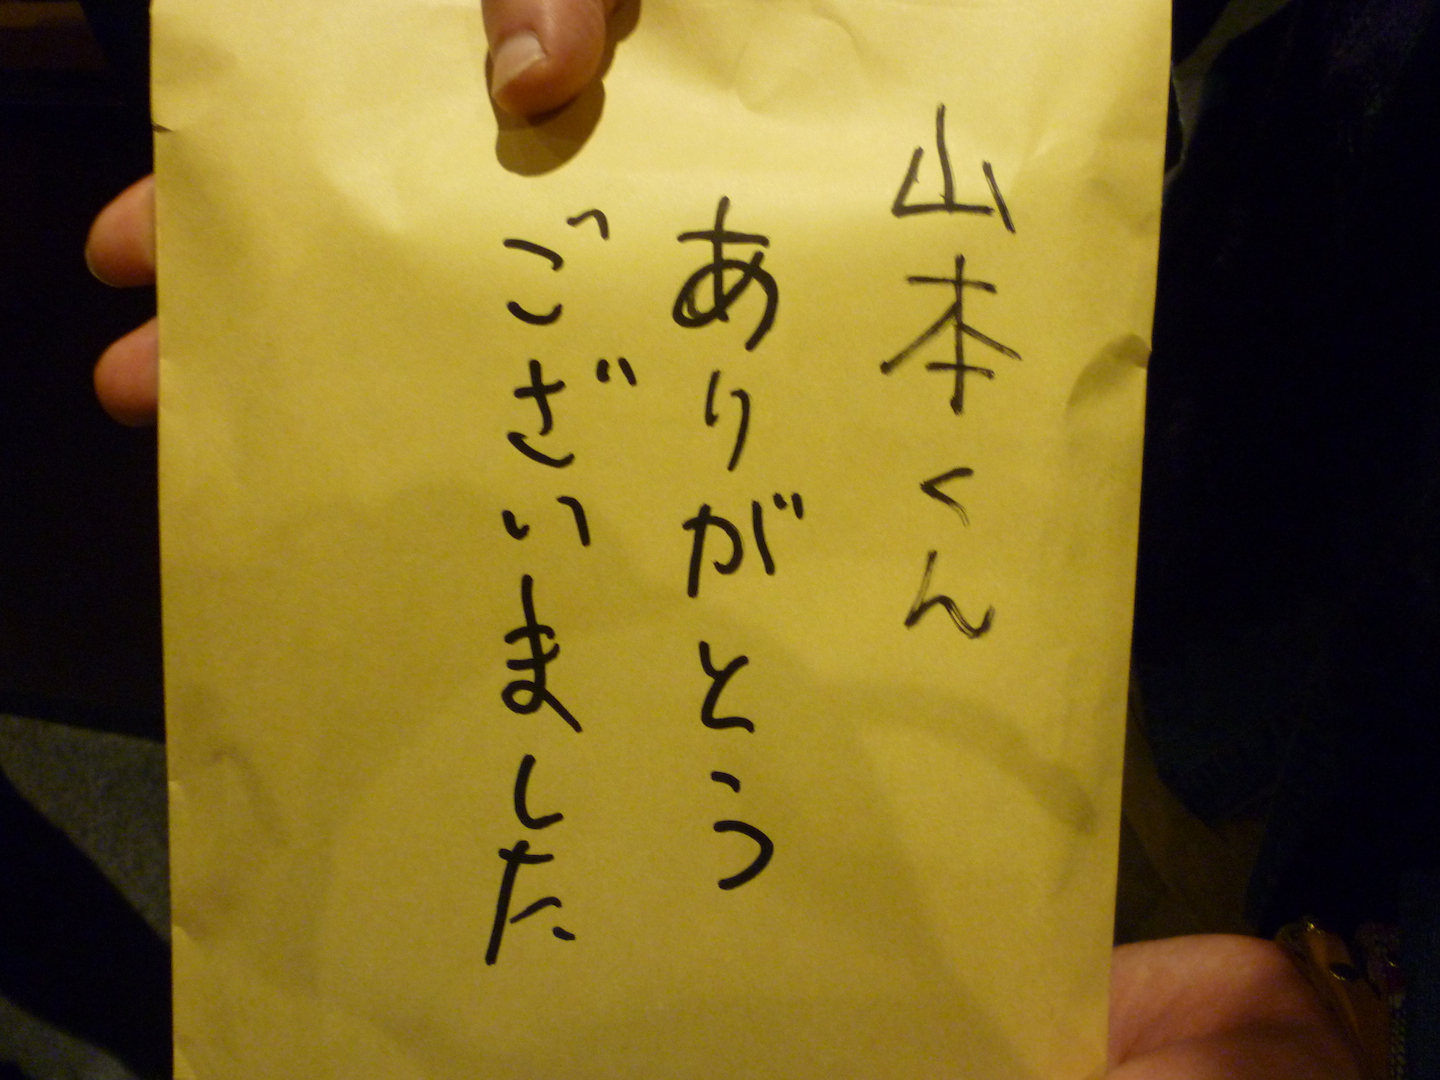 山本くん
ありがとう
ございました